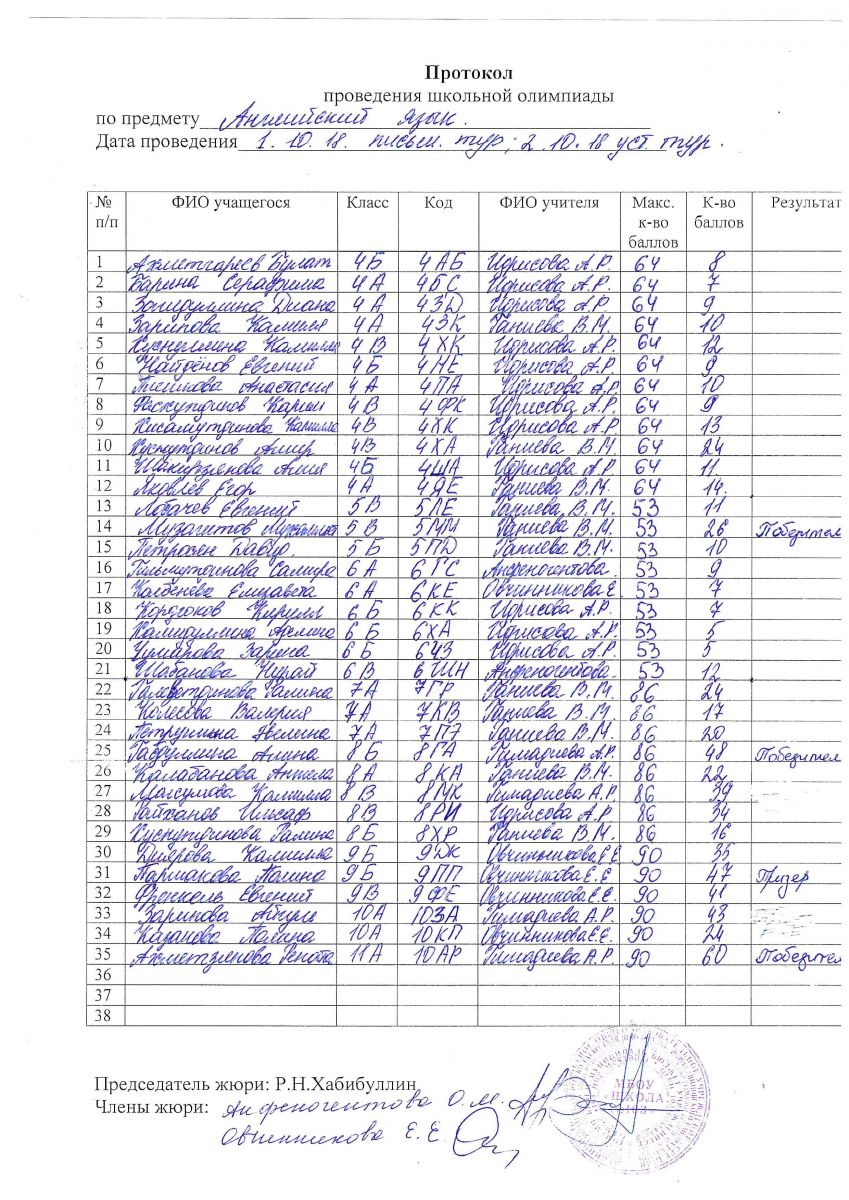 Протокол
проведения школьной олимпиады
по предмету Английский язык.
Дата проведения 1.10.18. письм. тур; 2.10.18 уст. тур.
№ п/п ФИО учащегося Класс Код ФИО учителя Макс. к-во баллов К-во баллов Результат
1 Ахметгареев Булат 4Б 4АБ Идрисова А.Р. 64 8
2 Барина Серафима 4А 4БС Идрисова А.Р. 64 7
3 Загидуллина Диана 4А 4ЗД Идрисова А.Р. 64 9
4 Зарипова Камиля 4А 4ЗК Ганиева В.М. 64 10
5 Хуснуллина Камилла 4В 4ХК Идрисова А.Р. 64 12
6 Найдёнов Евгений 4Б 4НЕ Идрисова А.Р. 64 9
7 Анастасия 4А 4ПА Идрисова А.Р. 64 10
8 Фасхутдинов Карим 4В 4ФК Идрисова А.Р. 64 9
9 Хисамутдинова Камилла 4В 4ХК Идрисова А.Р. 64 13
10 Хуснутдинов Амир 4В 4ХА Ганиева В.М. 64 24
11 Шакирзянова Алия 4Б 4ША Идрисова А.Р. 64 11
12 Яковлев Егор 4А 4ЯЕ Ганиева В.М. 64 14
13 Лобачев Евгений 5В 5ЛЕ Ганиева В.М. 53 11
14 Музагитов 5В 5ММ Ганиева В.М. 53 26 Победител
15 Петросян Давид. 5Б 5ПД Ганиева В.М. 53 10
16 Гильмутдинова Самира 6А 6ГС Анфеногентова. 53 9
17 Каленева Елизавета 6А 6КЕ Овчинникова Е. 53 7
18 Кирилл 6Б 6КК Идрисова А.Р. 53 7
19 Халидуллина 6Б 6ХА Идрисова А.Р. 53 5
20 Чумакова Зарина 6Б 6ЧЗ Идрисова А.Р. 53 5
21 Шабанова Нурай 6В 6ШН Анфеногентова. 53 12
22 Галина 7А 7ГР Ганиева В.М. 86 24
23 Колесова Валерия 7А 7КВ Ганиева В.М 86 17
24 Петрулина Эвелина 7А 7ПЭ Ганиева В.М. 86 20
25 Габдуллина Алина 8Б 8ГА Гимадиева А.Р. 86 48 Победител
26 Калабанова Ангела 8А 8КА Ганиева В.М. 86 22
27 Максумова Камилла 8В 8МК Гимадиева А.Р. 86 39
28 Гайханов Ильсаф 8В 8РИ Идрисова А.Р 86 34
29 Хуснутдинова Галина 8Б 8ХР Ганиева В.М. 86 16
30 Диярова Камилла 9Б 9ДК Овчинникова Е.Е 90 35
31 Паршакова Полина 9Б 9ПП Овчинникова Е.Е 90 47 Призер
32 Френкель Евгений 9В 9ФЕ Овчинникова Е.Е. 90 41
33 Зарипова 10А 10ЗА Гимадиева А.Р. 90 43
34 Казакова Полина 10А 10КП Овчинникова Е.Е. 90 24
35 Ахметзянова Рената 11А 10АР Гимадиева А.Р. 90 60 Победител
36
37
38
Председатель жюри: Р.Н.Хабибуллин
Члены жюри: Анфеногентова О.М.
Овчинникова Е.Е.
МБОУ
ШКОЛА